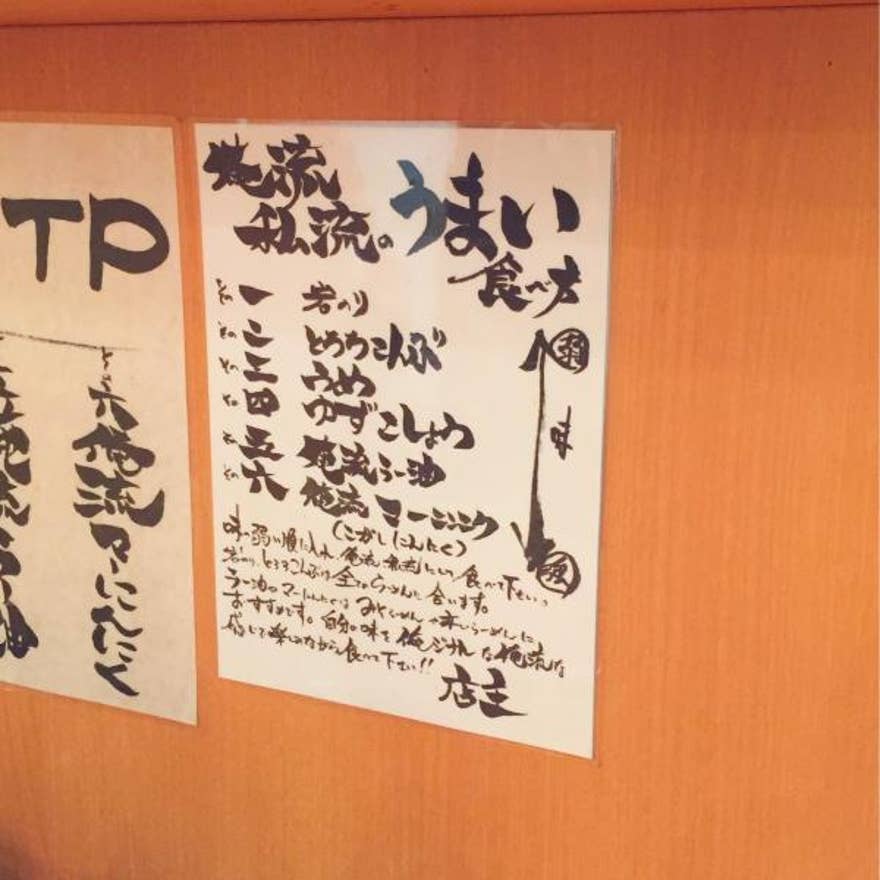 TP
と六俺流マーにんにく
俺流
私流のうまい
食べ方
その一 岩のり
その二 とろろこんぶ
その三 うめ
その四 ゆずこしょう
その五 俺流らー油
その六 俺流マーニンニク
(こがしにんにく)
弱
味
強
味の弱い順に入れ、俺流私流にして食べて下さい。
岩のり、とろろこんぶは全てのらーめんに合います。
ラー油のマーにんにくはみそらーめん
おすすめです。自分の味を俺ジナルな俺流な
感じで楽しみながら食べて下さい!!
店主